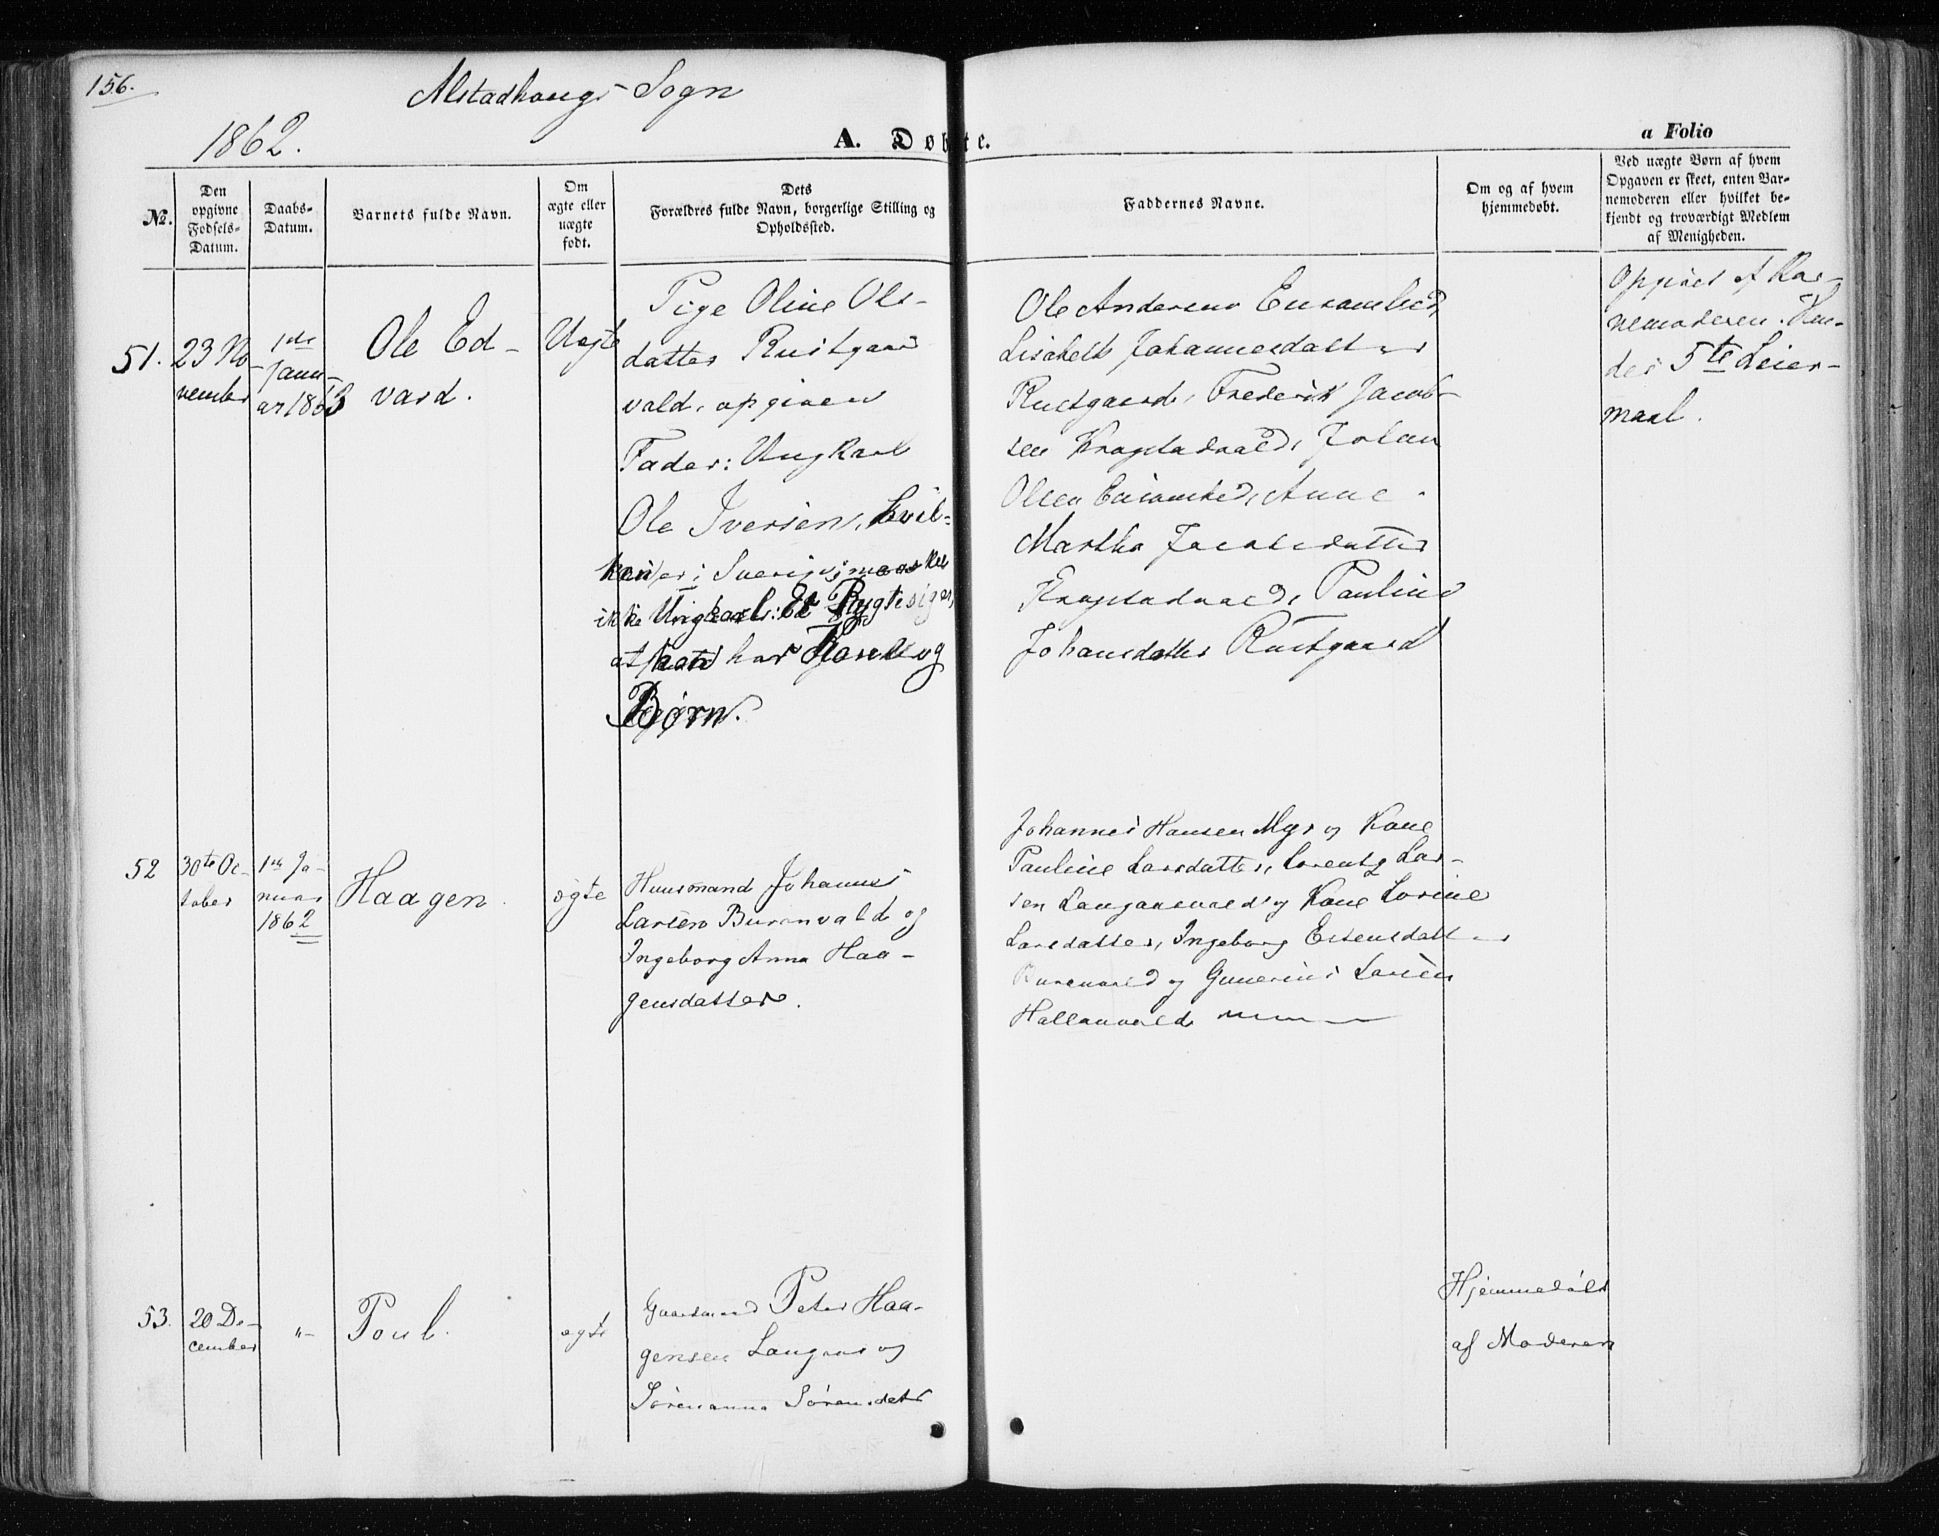 156.
Alstadhougs Sogn
1862.
A. Døbte.
a Folio
No.
Den opgivne Fødsels-Datum.
Daabs-Datum.
Barnets fulde Navn.
Om ægte eller uægte født.
Dets Forældres fulde Navn, borgerlige Stilling og Opholdssted.
Faddernes Navne.
Om og af hvem hjemmedøbt.
Ved uægte Børn af hvem Opgaven er skeet, enten Barnemoderen eller hvilket bekjendt og troværdigt Medlem af Menigheden.
51.
23 No-
vember
1ste
Janu-
ar 1863
Ole Ed-
vard.
Uægte
Pige Oline Ols-
datter Rustgaard
vald, opgiven
Fader: Ungkarl
Ole Iversen, hvil-
ken er i Sverige, maaskee
ikke Ungkarl: Et Rygte siger,
at han har Kone og
Børn.
Ole Andersen
Lisabeth Johannesdatter
Rustgaard, Frederik Jacob-
sen Kragstadvald, Johan
Olsen Anne
Martha Jacobsdatter
Kragstadvald, Pauline
Johansdatter Rustgaard
Opgivet af Bar-
nemoderen. Hen-
des 5te Leier-
maal.
52
30te Oc-
tober
1ste Ja-
nuar
1862
Haagen
ægte
Huusmand Johannes
Larsen Burenvald og
Ingeborg Anna Haa-
gensdatter.
Johannes Hansen Myr og Kone
Pauline Larsdatter, Lorents Lar-
sen Langaasvald og Kone Lorine
Larsdatter, Ingeborg Estensdatter
Burenvald og Gunerius Larsen
Hallanvald
53.
20 De-
cember
"-
Poul.
ægte
Gaardmand Peter Haa-
gensen Langaas og
Sørenanna Sørensdatr
Hjemmedøbt
af Moderen